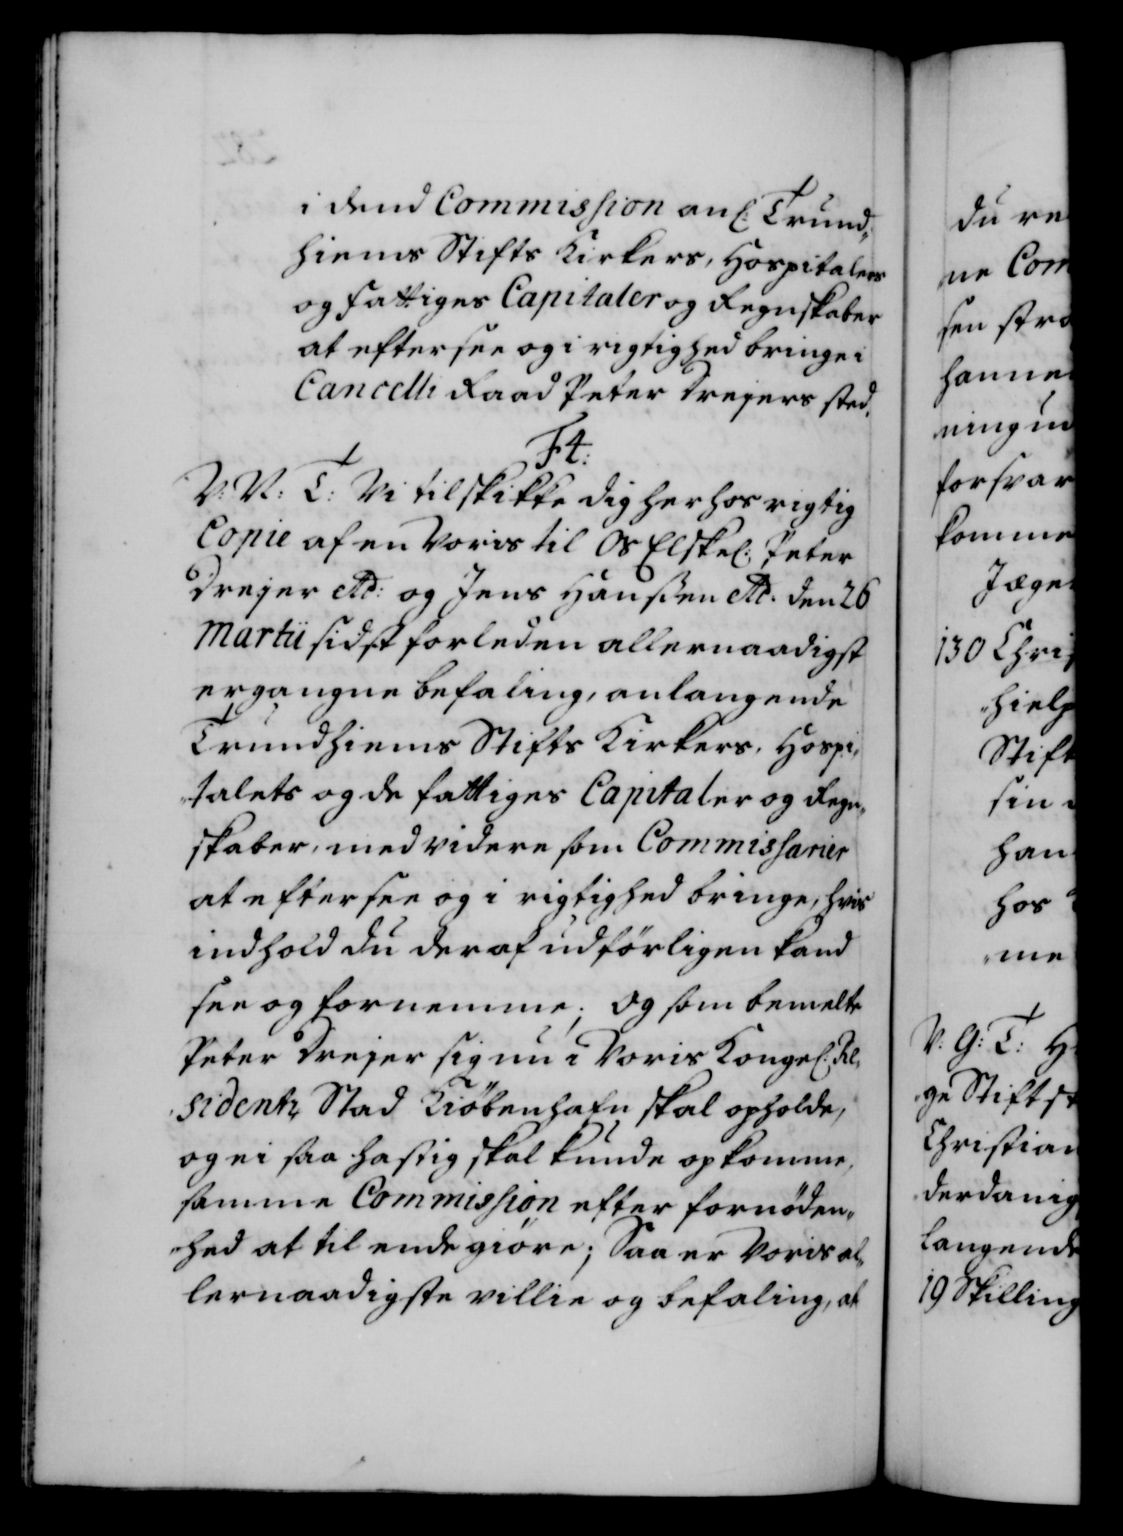 i dend Commission anl: Trund¬
hiems Stifts Kirkers, Hospitalers
og fattiges Capitaler og Regnskaber
at eftersee og i rigtighed bringe i
Cancelli Raad Peter Drejers sted.
F4:
V: V: T: Vi tilskikke dig herhos rigtig
Copie af en Voris til Os Elskel: Peter
Drejer etc: og Jens Hanssen etc. den 26
Martii sidst forleden allernaadigst
ergangne befaling, anlangende
Trundhiems Stifts Kirkers, Hospi¬
talets og de fattiges Capitaler og Regn¬
skaber, med videre som Commissarier
at eftersee og i rigtighed bringe, hvis
indhold du deraf udförligen kand
see og fornemme; Og som bemelte
Peter Drejer sig nu i Voris Kongel: Re¬
sidentz Stad Kiöbenhafn skal opholde,
og ei saa hastig skal kunde opkomme,
samme Commission efter fornöden¬
hed at til ende giöre; Saa er Voris al¬
lernaadigste villie og befaling, at
du re
ne Com
sen stra
hanne
ning un
forsvar
komme
Jæger
130 Chris
hielp
Stift
sin
han
hos
me
V: G: T: H
ge Stifts
Christian
derdanig
langende
19 Skilling